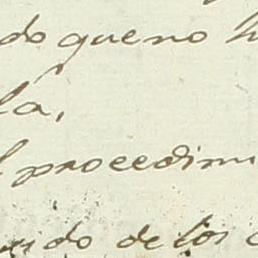 do que no h
la,
l procedimi
ido de los